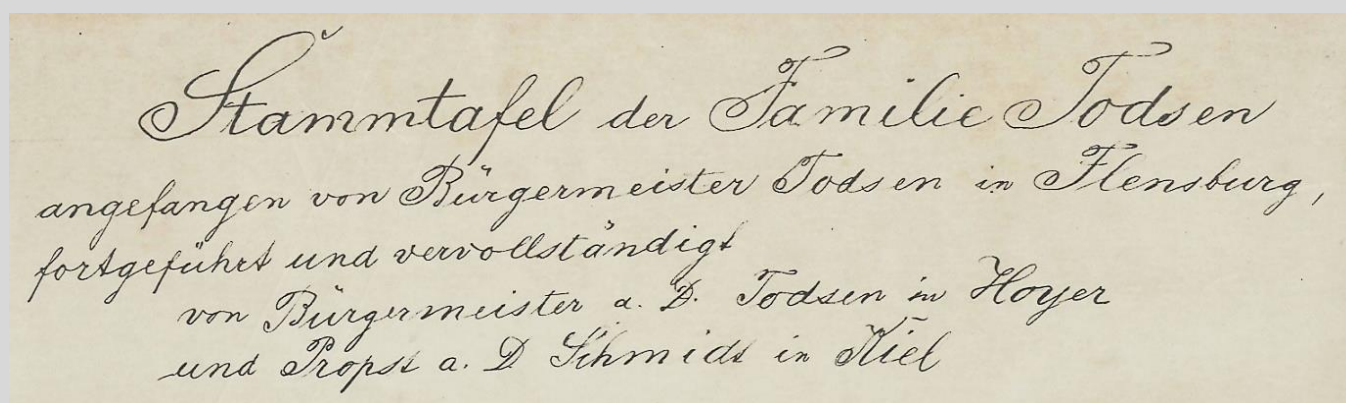 Stammtafel der Familie Todsen
angefangen von Bürgermeister Todsen in Flensburg,
fortgeführt und vervollständigt
von Bürgermeister a. D. Todsen in Hoyer
und Propst a. D Schmidt in Kiel